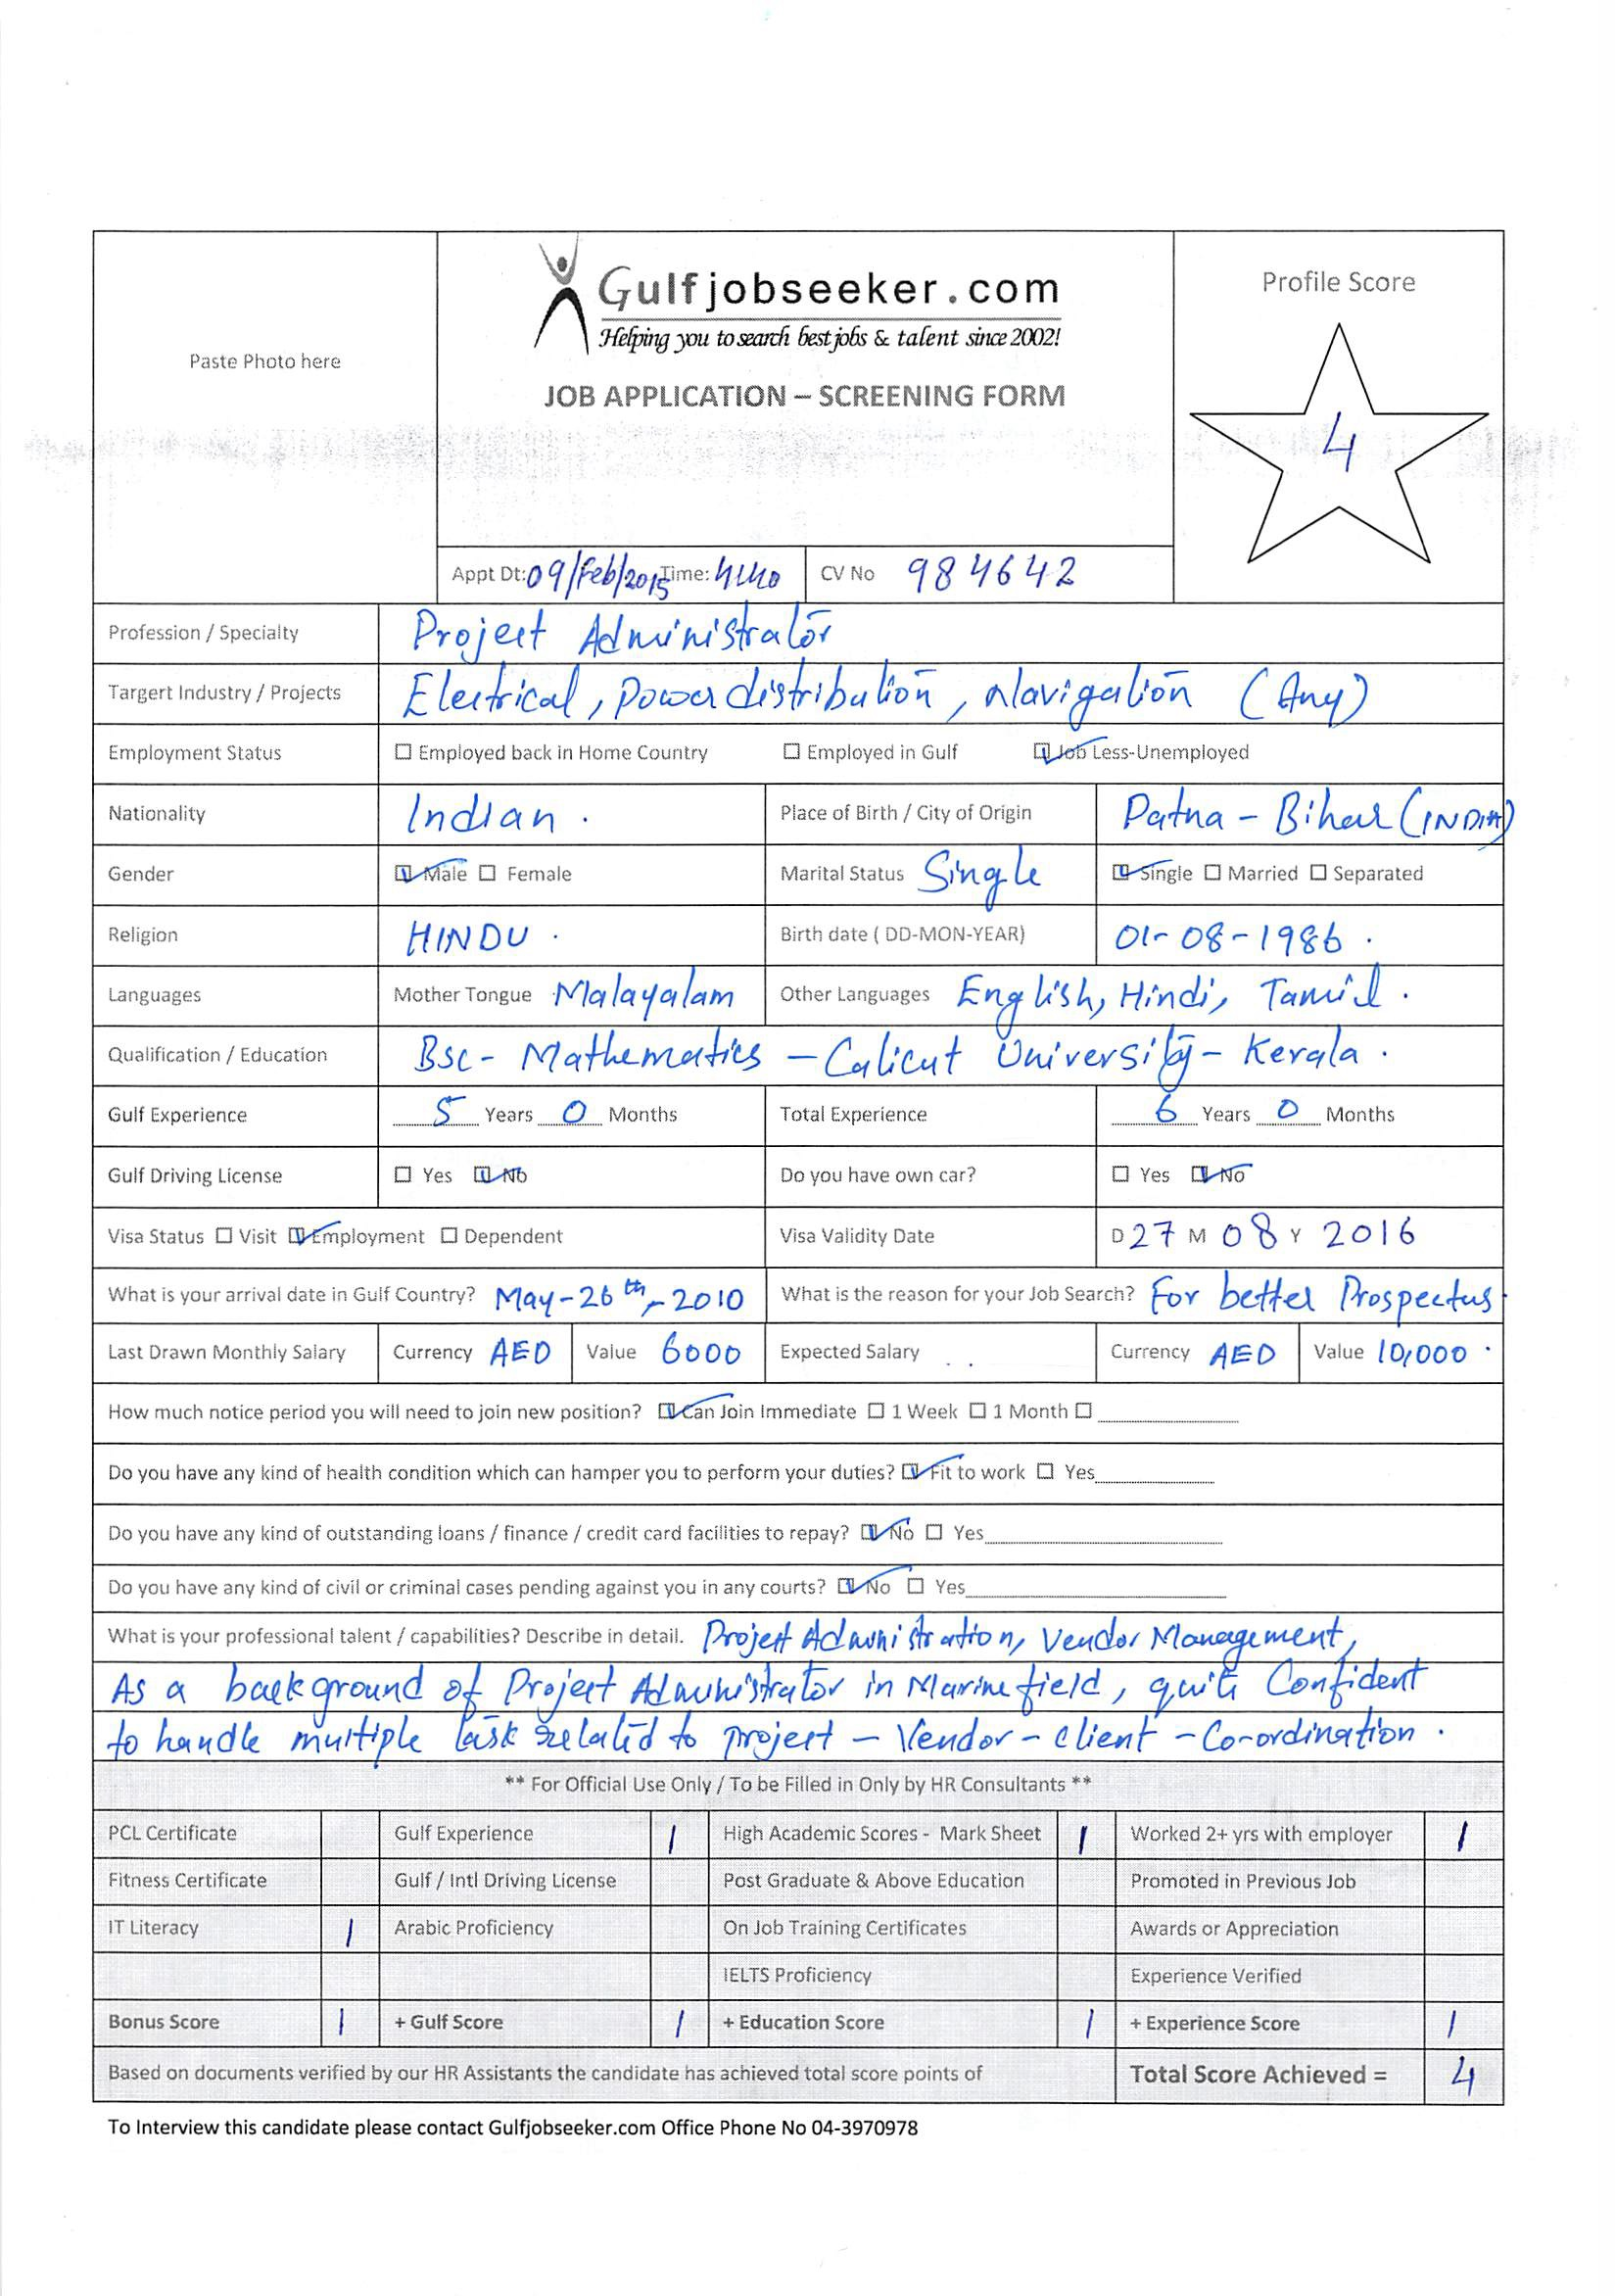 Paste Photo here
Gulfjobseeker.com
Helping you to search best jobs & talent since 2002!
JOB APPLICATION – SCREENING FORM
Profile Score
4
Appt Dt: 09/Feb/2015 Time: CV No 984642
Profession / Specialty Project Administrator
Targert Industry / Projects Electrical, Power distribution, Navigation (Any)
Employment Status ☐ Employed back in Home Country ☐ Employed in Gulf ☑ Job Less-Unemployed
Nationality Indian . Place of Birth / City of Origin Patna - Bihar (INDIA)
Gender ☑ Male ☐ Female Marital Status Single ☑ Single ☐ Married ☐ Separated
Religion HINDU . Birth date ( DD-MON-YEAR) 01-08-1986 .
Languages Mother Tongue Malayalam Other Languages English, Hindi, Tamil .
Qualification / Education Bsc - Mathematics - Calicut University - Kerala .
Gulf Experience 5 Years 0 Months Total Experience 6 Years 0 Months
Gulf Driving License ☐ Yes ☑ No Do you have own car? ☐ Yes ☑ No
Visa Status ☐ Visit ☑ Employment ☐ Dependent Visa Validity Date D 27 M 08 Y 2016
What is your arrival date in Gulf Country? May-26th-2010 What is the reason for your Job Search? For better Prospectus.
Last Drawn Monthly Salary Currency AED Value 6000 Expected Salary . . Currency AED Value 10,000 .
How much notice period you will need to join new position? ☑ Can Join Immediate ☐ 1 Week ☐ 1 Month ☐
Do you have any kind of health condition which can hamper you to perform your duties? ☑ Fit to work ☐ Yes
Do you have any kind of outstanding loans / finance / credit card facilities to repay? ☑ No ☐ Yes
Do you have any kind of civil or criminal cases pending against you in any courts? ☑ No ☐ Yes
What is your professional talent / capabilities? Describe in detail. Project Administration, Vendor Management,
As a background of Project Administrator in Marine field, quite Confident
to handle multiple task related to project - Vendor - client - Co-ordination .
** For Official Use Only / To be Filled in Only by HR Consultants **
PCL Certificate Gulf Experience 1 High Academic Scores - Mark Sheet 1 Worked 2+ yrs with employer 1
Fitness Certificate Gulf / Intl Driving License Post Graduate & Above Education Promoted in Previous Job
IT Literacy 1 Arabic Proficiency On Job Training Certificates Awards or Appreciation
IELTS Proficiency Experience Verified
Bonus Score 1 + Gulf Score 1 + Education Score 1 + Experience Score 1
Based on documents verified by our HR Assistants the candidate has achieved total score points of Total Score Achieved = 4
To Interview this candidate please contact Gulfjobseeker.com Office Phone No 04-3970978